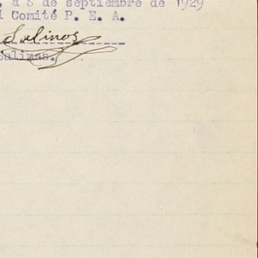 a 8 de septiembre de 1929
l Comité P. E. A.
Salinas
Salinas.